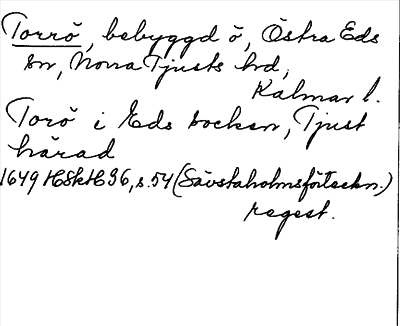 Torrö, bebyggd ö, Östra Eds
sn, Norra Tjusts hrd,
Kalmar l.
Torö i Eds socken, Tjust
härad
1649 HSkH 36, s. 54 (Sävstaholmsförteckn.)
regest.